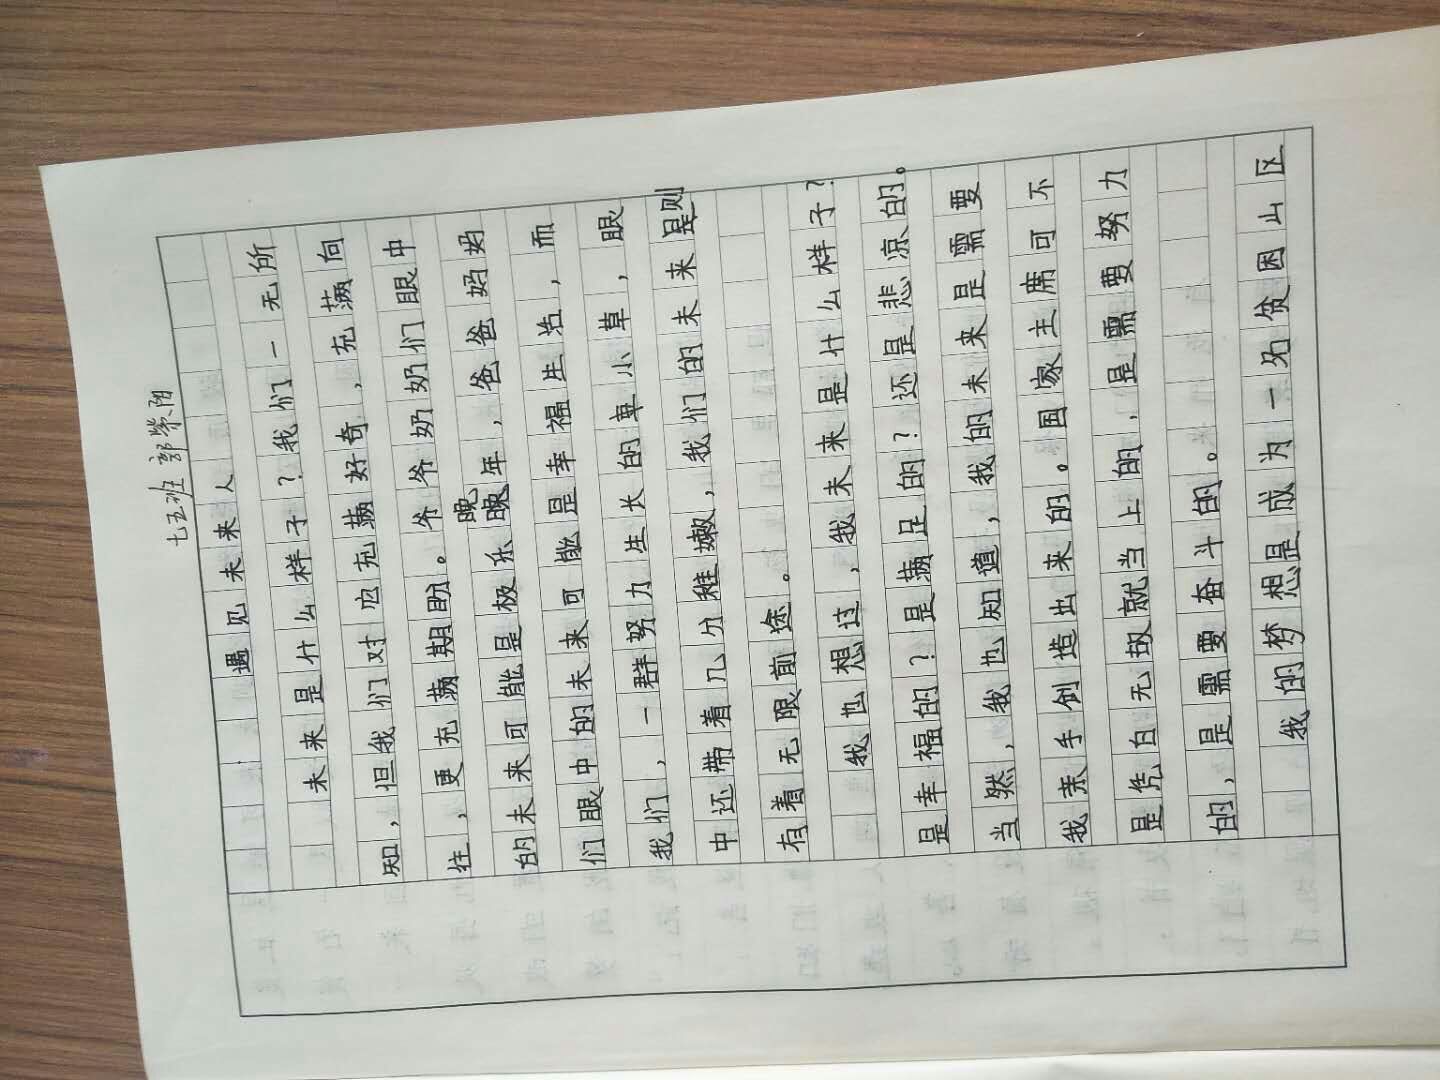 七五班 郭荣阳
遇见未来人
未来是什么样子？我们一无所
知，但我们对它充满好奇，充满向
往，更充满期盼。爷爷奶奶们眼中
的未来可能是极乐晚年，爸爸妈妈
们眼中的未来可能是幸福生活，而
我们，一群努力生长的草小草，眼
中还带着几分稚嫩，我们的未来是则
有着无限前途。
我也想过，我未来是什么样子？
是幸福的？是满足的？还是悲凉的。
当然，我也知道，我的未来是需要
我亲手创造出来的。国家主席可不
是凭白无故就当上的，是需要努力
的，是需要奋斗的。
我的梦想是成为一名贫困山区